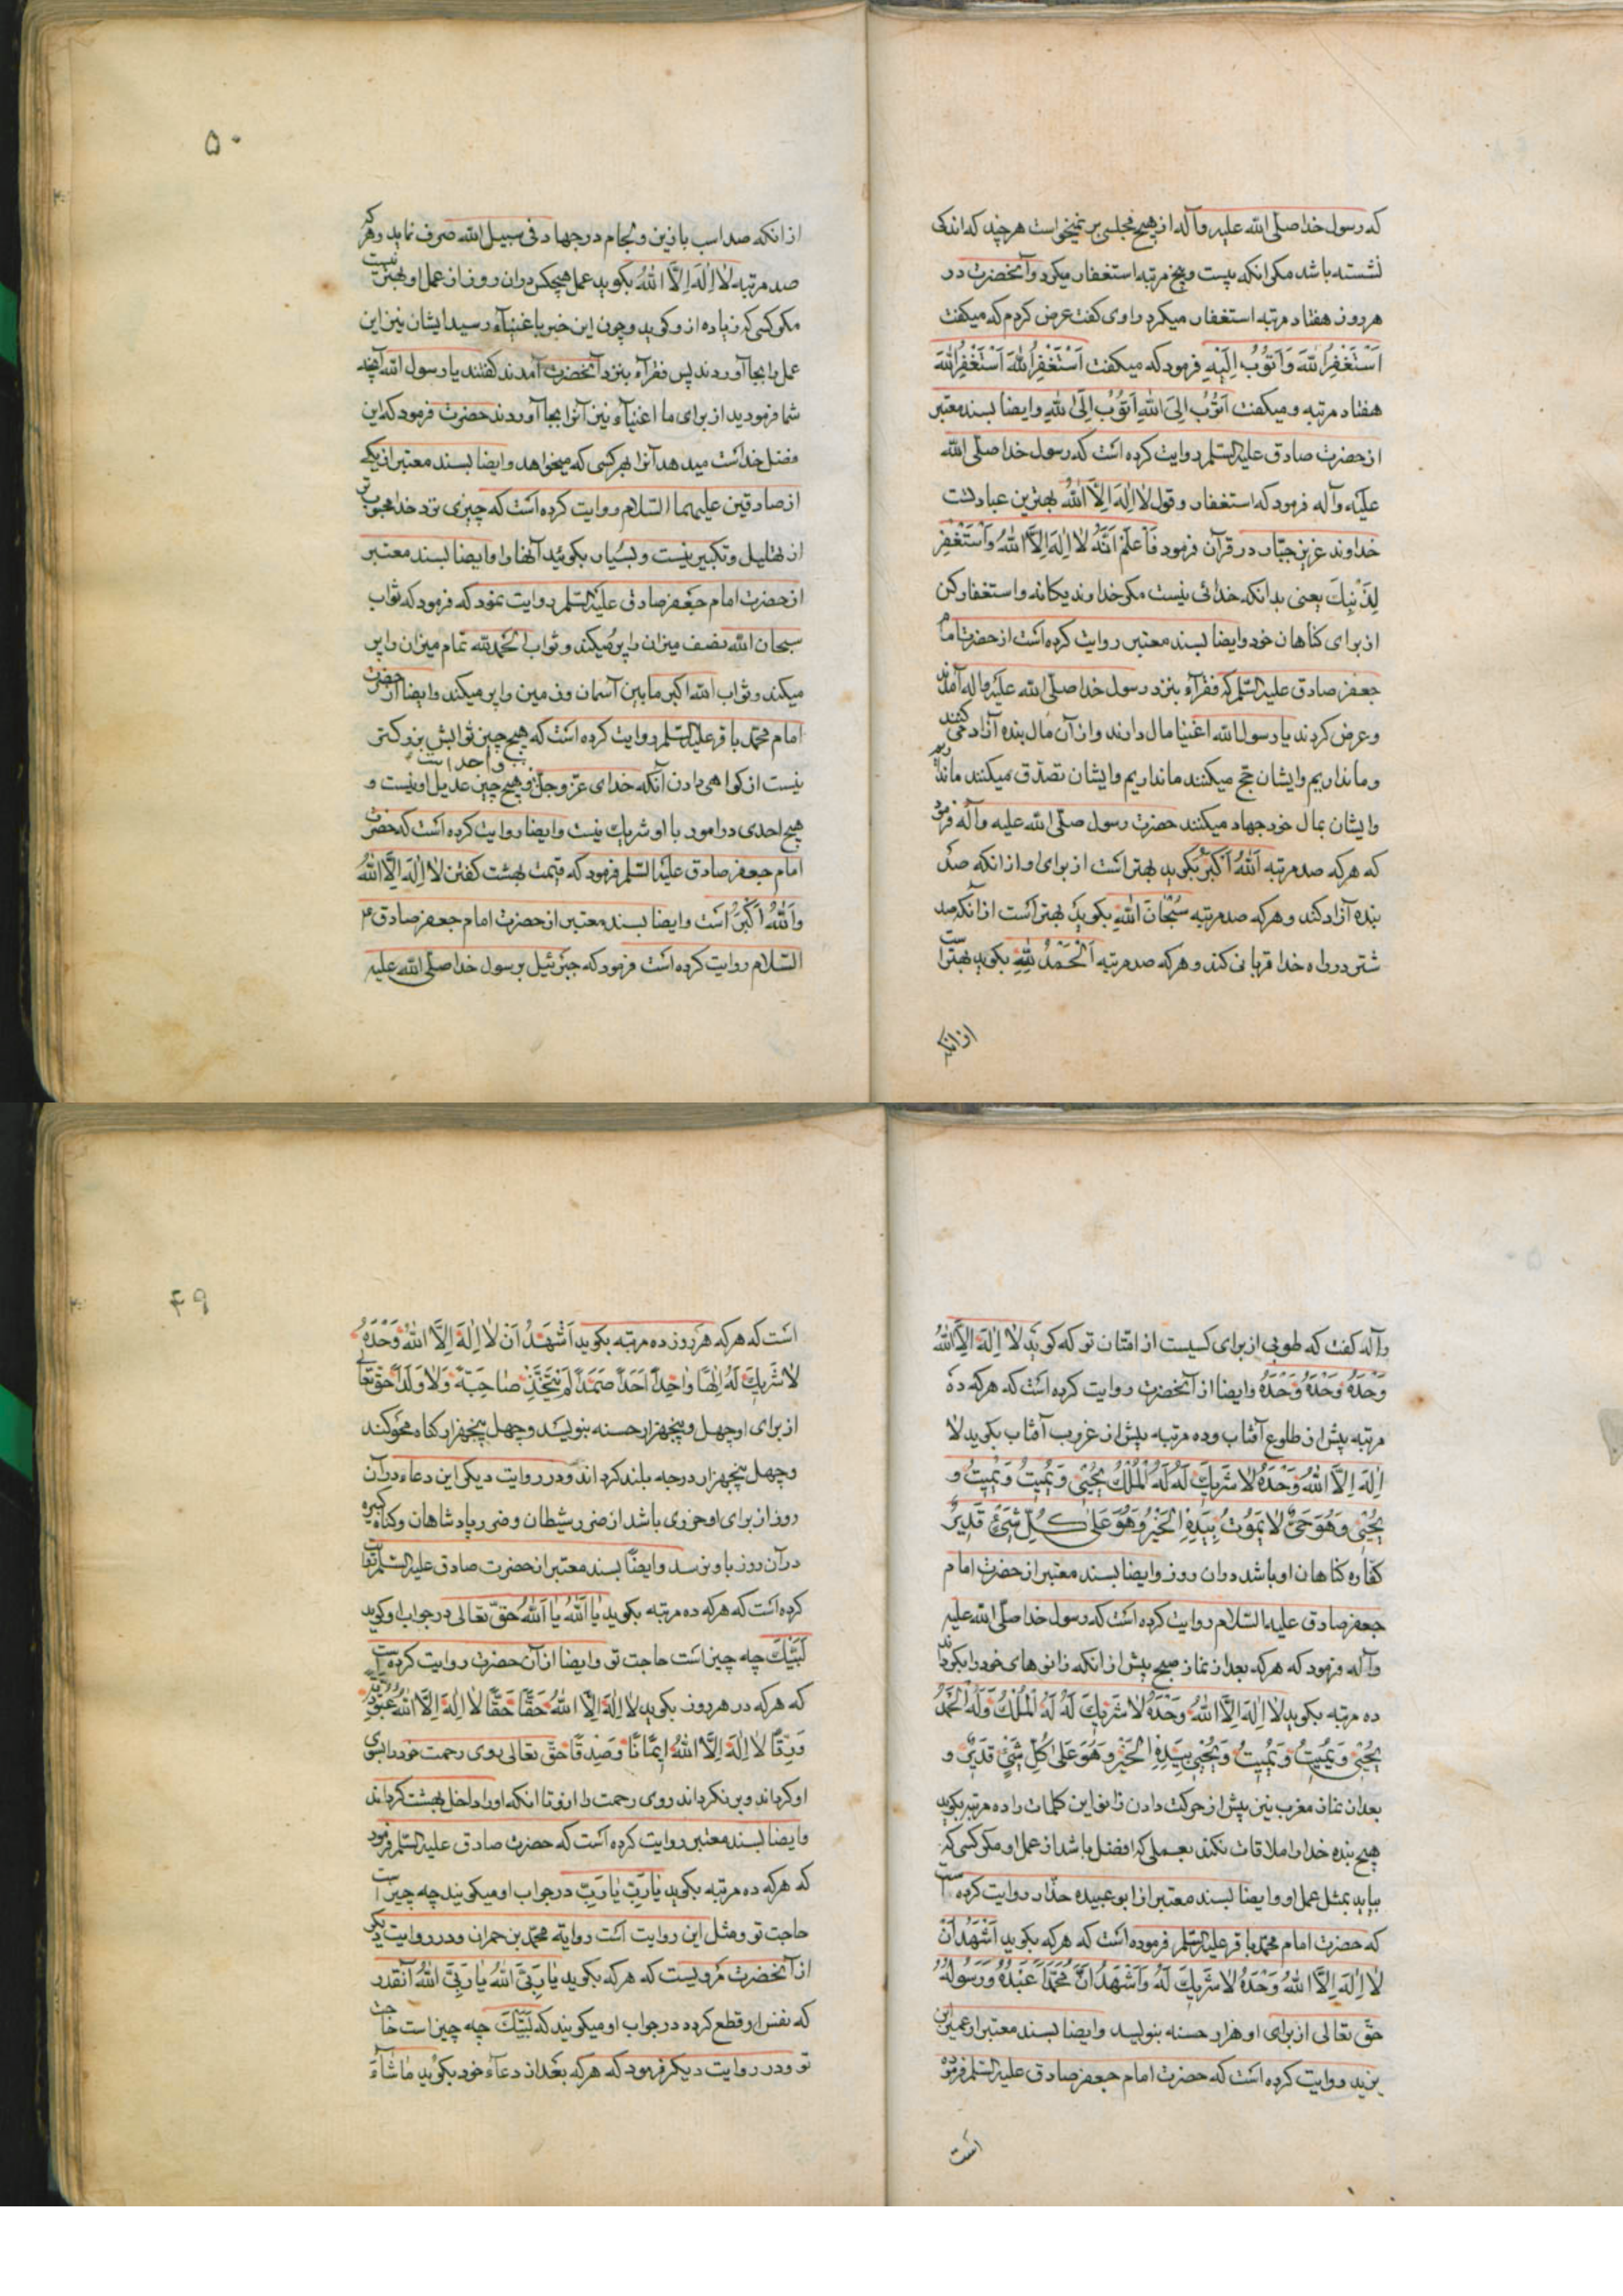 که رسول خدا صلی الله علیه وآله از هیچ مجلسی بر نمیخواست هر چند که اندکی
نشسته باشد مکر انکه بیست وپنج مرتبه استغفار میکرد وآنحضرت در
هر روز هفتاد مرتبه استغفار میکرد راوی کفت عرض کردم که میکفت
اَسْتَغْفِرُ اللهَ وَاَتُوبُ اِلَیْهِ فرمود که میکفت اَسْتَغْفِرُ اللهَ اَسْتَغْفِرُ اللهَ
هفتاد مرتبه ومیکفت اَتُوبُ اِلیَ اللهِ اَتُوبُ اِلَی اللهِ وایضا بسند معتبر
از حضرت صادق علیه السلم روایت کرده است که رسول خدا صلی الله
علیه وآله فرمود که استغفار وقول لا اِلٰهَ اِلَّا اللهُ بهترین عبادتست
خداوند عزیز جبّار در قرآن فرمود فَاعْلَمْ اَنَّهُ لا اِلٰهَ اِلَّا اللهُ وَاسْتَغْفِرْ
لِذَنْبِكَ یعنی بدانکه خدائی نیست مکر خداوند یکانه واستغفار کن
از برای کناهان خود وایضا بسند معتبر روایت کرده است از حضرت امام
جعفر صادق علیه السلم که فقرآء بنزد رسول خدا صلی الله علیه واله آمدند
وعرض کردند یا رسول الله اغنیا مال دارند واز آن مال بنده آزاد می کنند
وما نداریم وایشان حج میکنند ما نداریم وایشان تصدّق میکنند ما نداریم
وایشان بمال خود جهاد میکنند حضرت رسول صلی الله علیه وآله فرمود
که هر که صد مرتبه اَللهُ اَکْبَرُ بکوید بهتر است از برای او از انکه صد
بنده آزاد کند وهر که صد مرتبه سُبْحَانَ اللهِ بکوید بهتر است از آنکه صد
شتر در راه خدا قربانی کند وهر که صد مرتبه اَلْحَمْدُ لِلّٰهِ بکوید بهتر است
از انکه
۵۰
از انکه صد اسب با زین ولجام در جهاد فی سبیل الله صرف نماید وهر که
صد مرتبه لا اِلٰهَ اِلَّا اللهُ بکوید عمل هیچکس در ان روز از عمل او بهتر نیست
مکر کسی که زیاده از و کوید وچون این خبر با غنیآء رسید ایشان نیز این
عمل را بجا آوردند پس فقرآء بنزد آنحضرت آمدند کفتند یا رسول الله آنچه
شما فرمودید از برای ما اغنیآء نیز آنرا بجا آوردند حضرت فرمود که این
فضل خداست میدهد آنرا بهر کسی که میخواهد وایضا بسند معتبر از یکی
از صادقین علیهما السلام روایت کرده است که چیزی نزد خدا محبوب تر
از تهلیل وتکبیر نیست وبسیار بکوئید آنها را وایضا بسند معتبر
از حضرت امام جعفر صادق علیه السلم روایت نمود که فرمود که ثواب
سبحان الله نصف میزان را پر میکند وثواب الحمد لله تمام میزان را پر
میکند وثواب الله اکبر ما بین آسمان وزمین را پر میکند وایضا از حضرت
امام محمّد باقر علیه السلم روایت کرده است که هیچ چیز ثوابش بزرکتر
نیست از کواهی دادن آنکه خدای عزّ وجلّ واحد است وهیچ چیز عدیل او نیست و
هیچ احدی در امور با او شریك نیست وایضا روایت کرده است که حضرت
امام جعفر صادق علیه السلم فرمود که قیمت بهشت کفتن لا اِلٰهَ اِلَّا اللهُ
وَاللهُ اَکْبَرُ است وایضا بسند معتبر از حضرت امام جعفر صادق ع
السّلام روایت کرده است فرمود که جبرئیل برسول خدا صلی الله علیه
وآله کفت که طوبی از برای کسیست از امّتان تو که کوید لا اِلٰهَ اِلَّا اللهُ
وَحْدَهُ وَحْدَهُ وَحْدَهُ وایضا از آنحضرت روایت کرده است که هر که ده
مرتبه پیش از طلوع آفتاب وده مرتبه پیش از غروب آفتاب بکوید لا
اِلٰهَ اِلَّا اللهُ وَحْدَهُ لا شَرِیكَ لَهُ لَهُ الْمُلْكُ یُحْیٖی وَیُمیٖتُ وَیُمیٖتُ وَ
یُحْیٖی وَهُوَ حَیٌّ لا یَمُوتُ بِیَدِهِ الْخَیْرُ وَهُوَ عَلیٰ کُلِّ شَیْءٍ قَدیٖرٌ
کفّاره کناهان او باشد در ان روز وایضا بسند معتبر از حضرت امام
جعفر صادق علیه السّلام روایت کرده است که رسول خدا صلی الله علیه
وآله فرمود که هر که بعد از نماز صبح پیش از انکه زانوهای خود را بکرداند
ده مرتبه بکوید لا اِلٰهَ اِلَّا اللهُ وَحْدَهُ لا شَرِیكَ لَهُ لَهُ الْمُلْكُ وَلَهُ الْحَمْدُ
یُحْیٖی وَیُمیٖتُ وَیُمیٖتُ وَیُحْیٖی بِیَدِهِ الْخَیْرُ وَهُوَ عَلیٰ کُلِّ شَیْءٍ قَدیٖرٌ و
بعد از نماز مغرب نیز پیش از حرکت دادن زانو این کلمات را ده مرتبه بکوید
هیچ بنده خدا را ملاقات نکند بعملی که افضل باشد از عمل او مکر کسی که
بیاید بمثل عمل او وایضا بسند معتبر از ابو عبیده حذّاء روایت کرده است
که حضرت امام محمّد باقر علیه السلم فرموده است که هر که بکوید اَشْهَدُ اَنْ
لا اِلٰهَ اِلَّا اللهُ وَحْدَهُ لا شَرِیكَ لَهُ وَاَشْهَدُ اَنَّ مُحَمَّدًا عَبْدُهُ وَرَسُولُهُ
حقّ تعالی از برای او هزار حسنه بنویسد وایضا بسند معتبر از عمر بن
یزید روایت کرده است که حضرت امام جعفر صادق علیه السلم فرموده
است
۴۹
است که هر که هر روز ده مرتبه بکوید اَشْهَدُ اَنْ لا اِلٰهَ اِلَّا اللهُ وَحْدَهُ
لا شَرِیكَ لَهُ اِلٰهًا وٰاحِدًا اَحَدًا صَمَدًا لَمْ یَتَّخِذْ صٰاحِبَةً وَلا وَلَدًا حقّ تعالی
از برای او چهل وپنجهزار حسنه بنویسد وچهل پنجهزار کناه محو کند
وچهل پنجهزار درجه بلند کرداند ودر روایت دیکر این دعاء در آن
روز از برای او حرزی باشد از ضرر شیطان وضرر پادشاهان وکناه کبیره
در آن روز باو نرسد وایضًا بسند معتبر از حضرت صادق علیه السلم روایت
کرده است که هر که ده مرتبه بکوید یٰا اَللهُ یٰا اَللهُ حقّ تعالی در جواب او کوید
لَبَّیْكَ چه چیز است حاجت تو وایضا از آن حضرت روایت کرده است
که هر که در هر روز بکوید لا اِلٰهَ اِلَّا اللهُ حَقًّا حَقًّا لا اِلٰهَ اِلَّا اللهُ عُبُودِیَّةً
وَرِقًّا لا اِلٰهَ اِلَّا اللهُ اِیمٰانًا وَصِدْقًا حقّ تعالی روی رحمت خود را بسوی
او کرداند وبر نکرداند روی رحمت را از و تا انکه او را داخل بهشت کرداند
وایضا بسند معتبر روایت کرده است که حضرت صادق علیه السلم فرمود
که هر که ده مرتبه بکوید یٰا رَبِّ یٰا رَبِّ در جواب او میکویند چه چیز است
حاجت تو ومثل این روایت است روایة محمّد بن حمران ودر روایت دیکر
از آنحضرت مرویست که هر که بکوید یٰا رَبِّیَ اللهُ یٰا رَبِّیَ اللهُ آنقدر
که نفس او قطع کرده در جواب او میکویند که لَبَّیْكَ چه چیز است حاجت
تو ودر روایت دیکر فرمود که هر که بعد از دعاء خود بکوید مٰا شٰآءَ